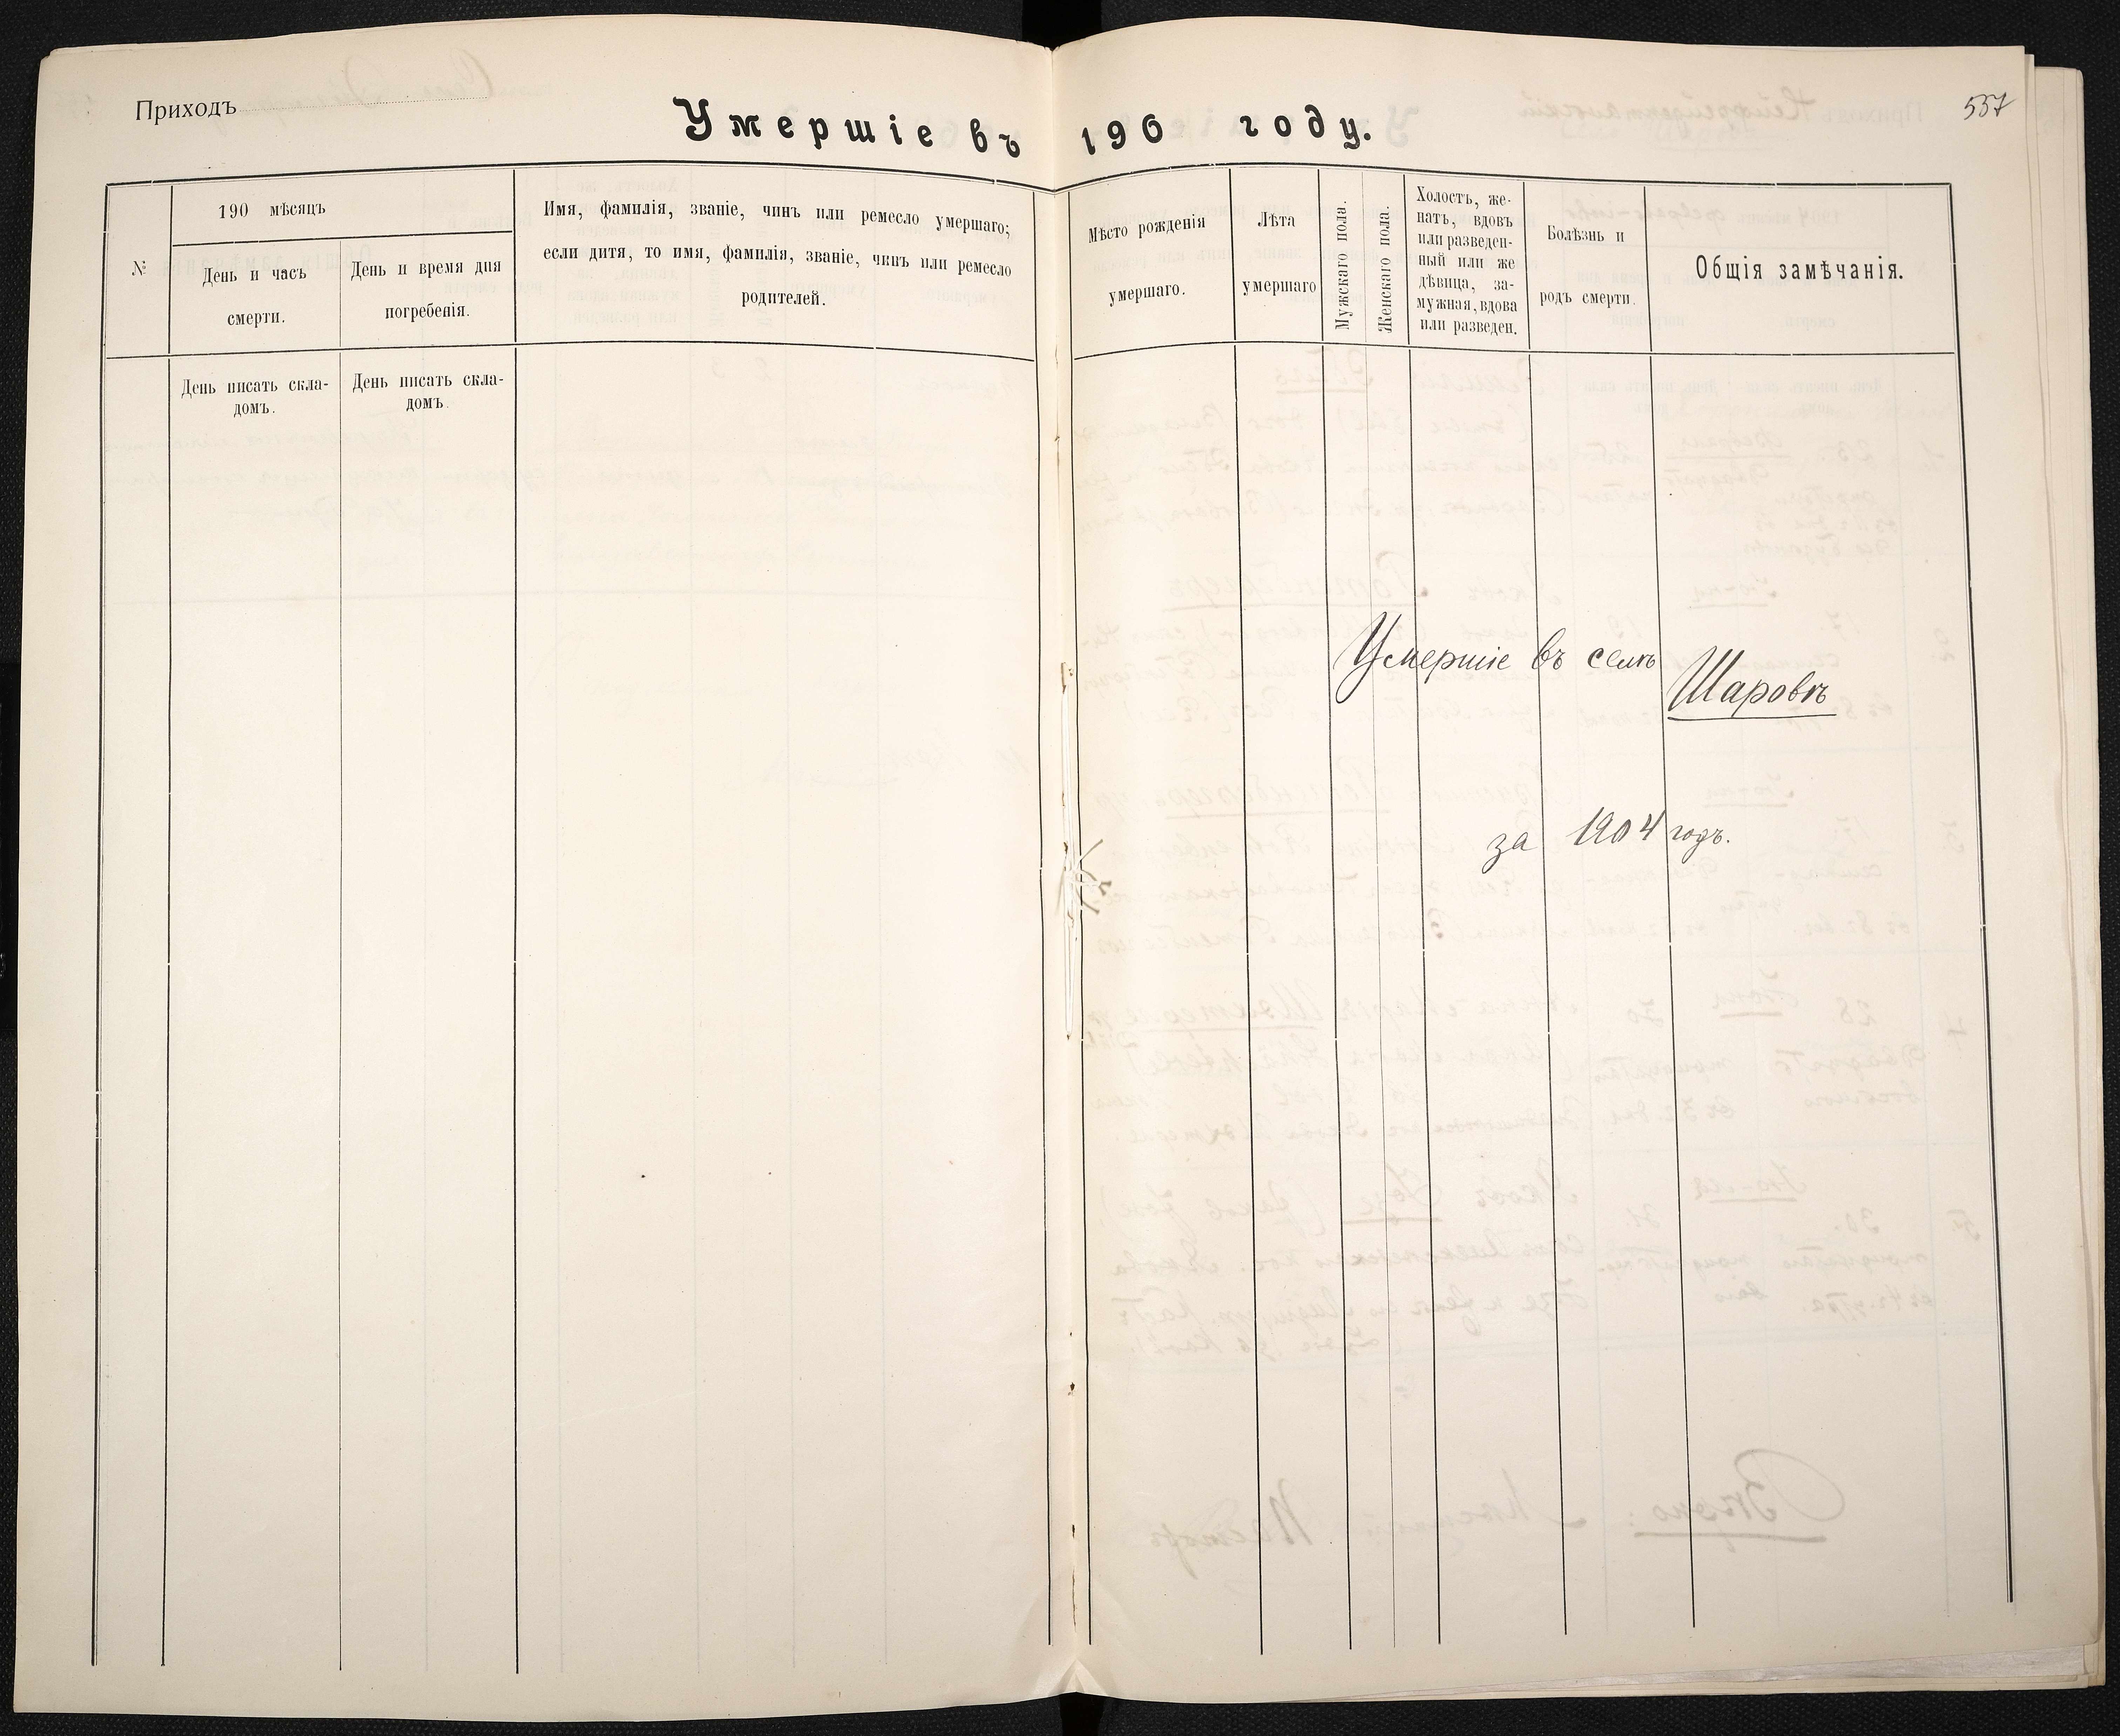 Приходъ
Умершіе въ 190 году.
557
№
190 мѣсяцъ
День и часъ
смерти.
День и время дня
погребенія.
Имя, фамилія, званіе, чинъ или ремесло умершаго;
если дитя, то имя, фамилія, званіе, чинъ или ремесло
родителей.
Мѣсто рожденія
умершаго.
Лѣта
умершаго
Мужскаго пола.
Женскаго пола.
Холостъ, же-
натъ, вдовъ
или разведен-
ный или же
дѣвица, за-
мужная, вдова
или разведен.
Болѣзнь и
родъ смерти.
Общія замѣчанія.
День писать скла-
домъ.
День писать скла-
домъ.
Умершіе въ селѣ
Шаровѣ
за 1904 годъ.